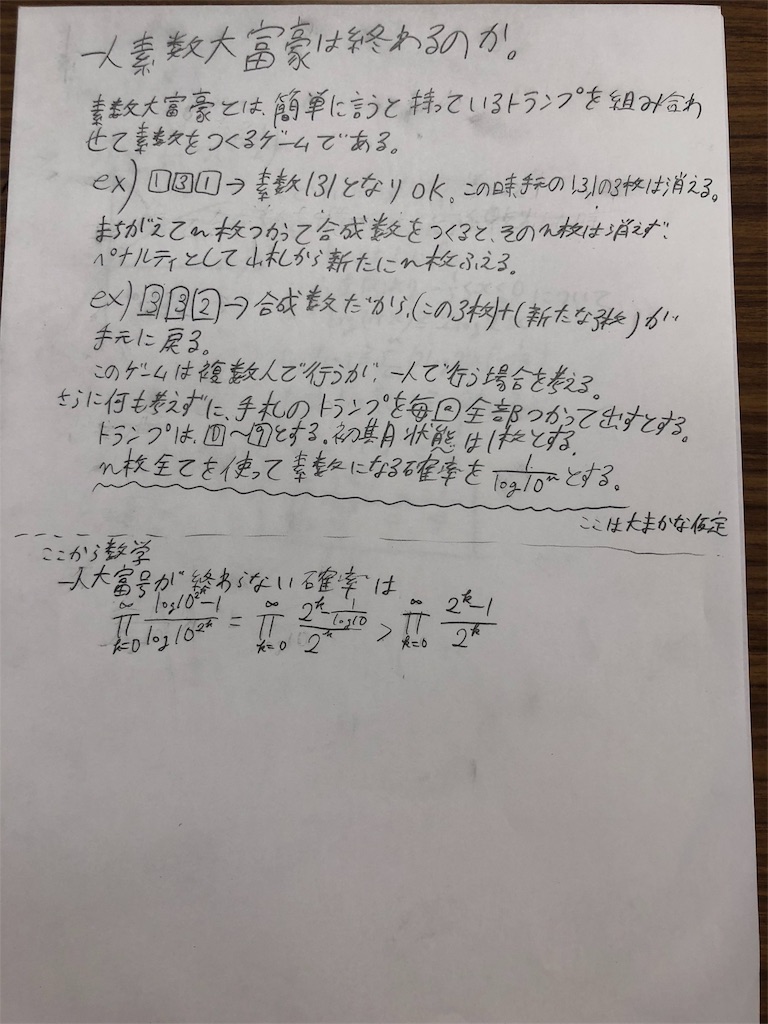 一人素数大富豪は終わるのか。
素数大富豪とは、簡単に言うと持っているトランプを組み合わ
せて素数をつくるゲームである。
ex) 1 3 1 → 素数131となりOK。この時手元の1,3,1の3枚は消える。
まちがえてn枚つかって合成数をつくると、そのn枚は消えず、
ペナルティとして山札から新たにn枚ふえる。
ex) 3 3 2 → 合成数だから、(この3枚)+(新たな3枚)が
手元に戻る。
このゲームは複数人で行うが、一人で行う場合を考える。
さらに何も考えずに、手札のトランプを毎回全部つかって出すとする。
トランプは、0〜9とする。初期状態は1枚とする。
n枚全てを使って素数になる確率を 1/log10^n とする。
ここは大まかな仮定
ここから数学
一人大富号が終わらない確率は
∏_{k=0}^{∞} (log10^{2^k}-1)/(log10^{2^k}) = ∏_{k=0}^{∞} (2^k - 1/log10)/(2^k) > ∏_{k=0}^{∞} (2^k-1)/(2^k)